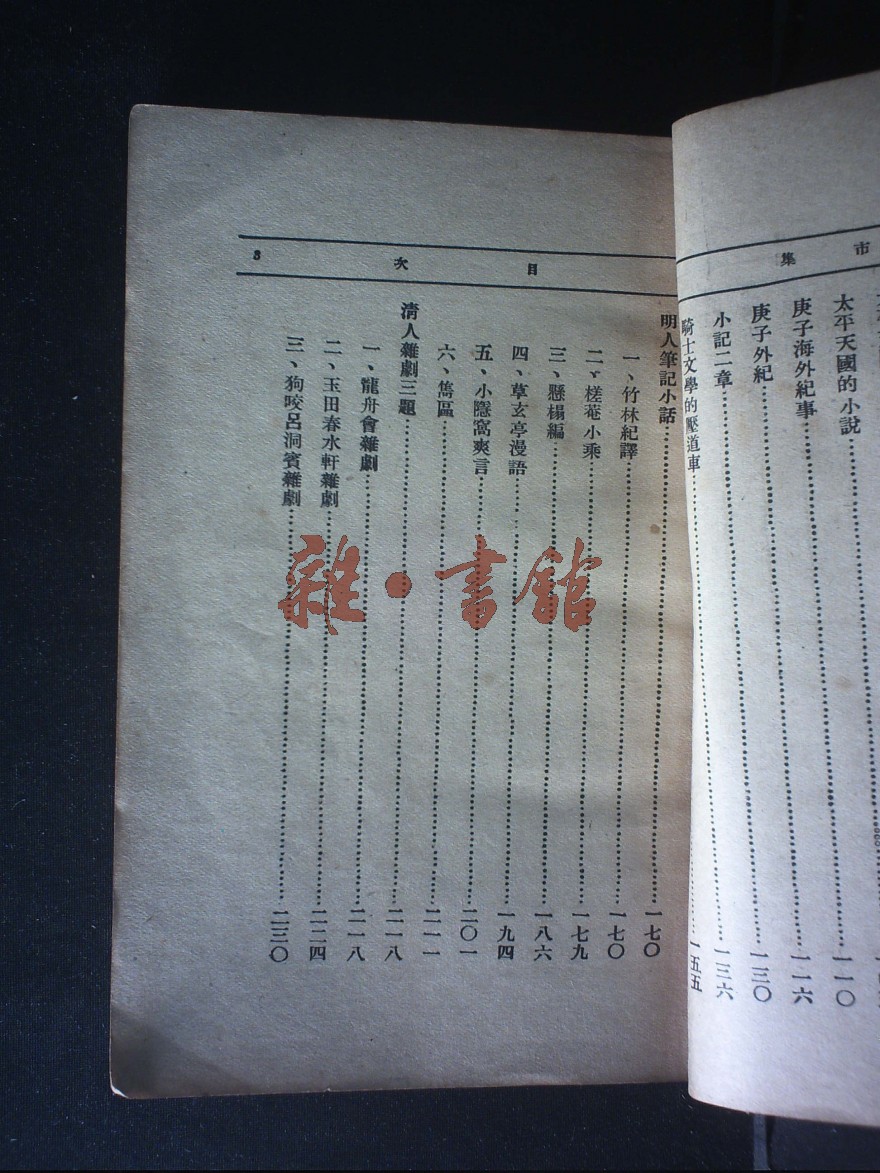 市集
太平天國的小說 一一〇
庚子海外紀事 一一六
庚子外紀 一三〇
小記二章 一三六
騎士文學的壓道車 一五五
目次 3
明人筆記小話 一七〇
一、竹林紀譯 一七〇
二、槎菴小乘 一七九
三、懸榻編 一八六
四、草玄亭漫語 一九四
五、小隱窩爽言 二〇一
六、雋區 二一一
清人雜劇三題 二一八
一、龍舟會雜劇 二一八
二、玉田春水軒雜劇 二二四
三、狗咬呂洞賓雜劇 二三〇
雜·書館